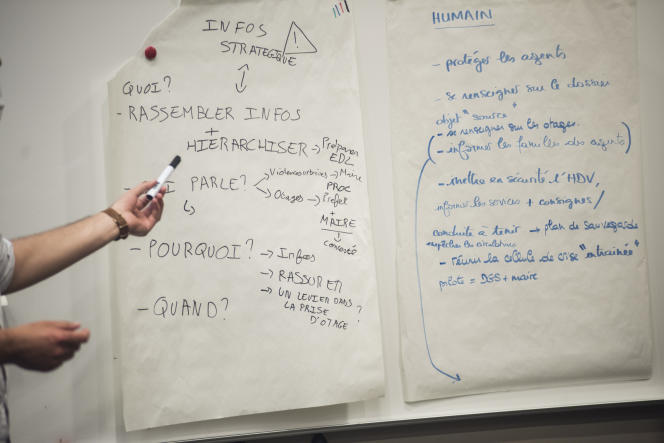 INFOS
STRATEGIQUE
!
QUOI?
- RASSEMBLER INFOS
+
HIERARCHISER → Préparer
EDL
PARLE?
Violences urbaines → Maire
PROC
Otages → Préfet
+
MAIRE
↓
- POURQUOI?
→ Infos
→ RASSURER
→ UN LEVIER DANS
LA PRISE
D'OTAGE ?
- QUAND?
HUMAIN
- protéger les agents
- se renseigner sur le dossier
objet "source"
- se renseigner sur les otages.
- informer les familles des agents
- mettre en sécurité l'HDV,
informer les services + consignes /
conduite à tenir → plan de sauvegarde
- réunir la cellule de crise "entrainée"
pilote = DGS + maire